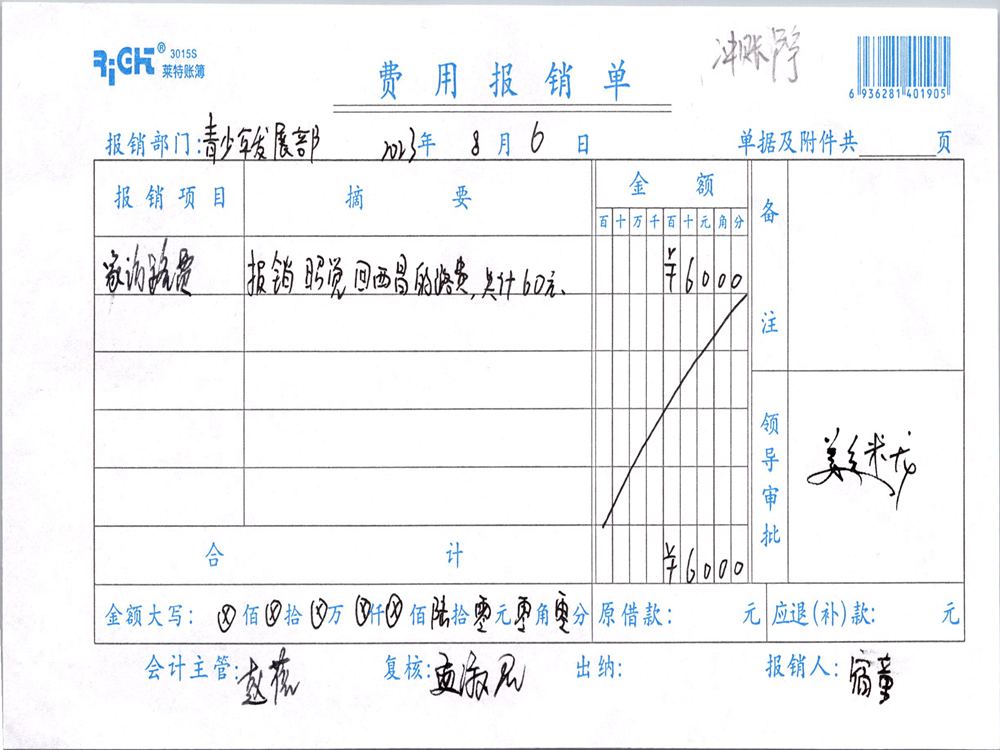 RiGHT® 3015S
莱特账簿
冲账
费用报销单
6 936281 401905
报销部门:青少年发展部 2023年 8月 6日 单据及附件共 页
报销项目 摘要 金额 备注
百十万千百十元角分
家访路费 报销昭觉回西昌的路费,共计60元. ¥6000
领导审批
合计 ¥6000
金额大写: ⊗佰⊗拾⊗万⊗仟⊗佰陆拾零元零角零分 原借款: 元 应退(补)款: 元
会计主管: 复核: 出纳: 报销人: